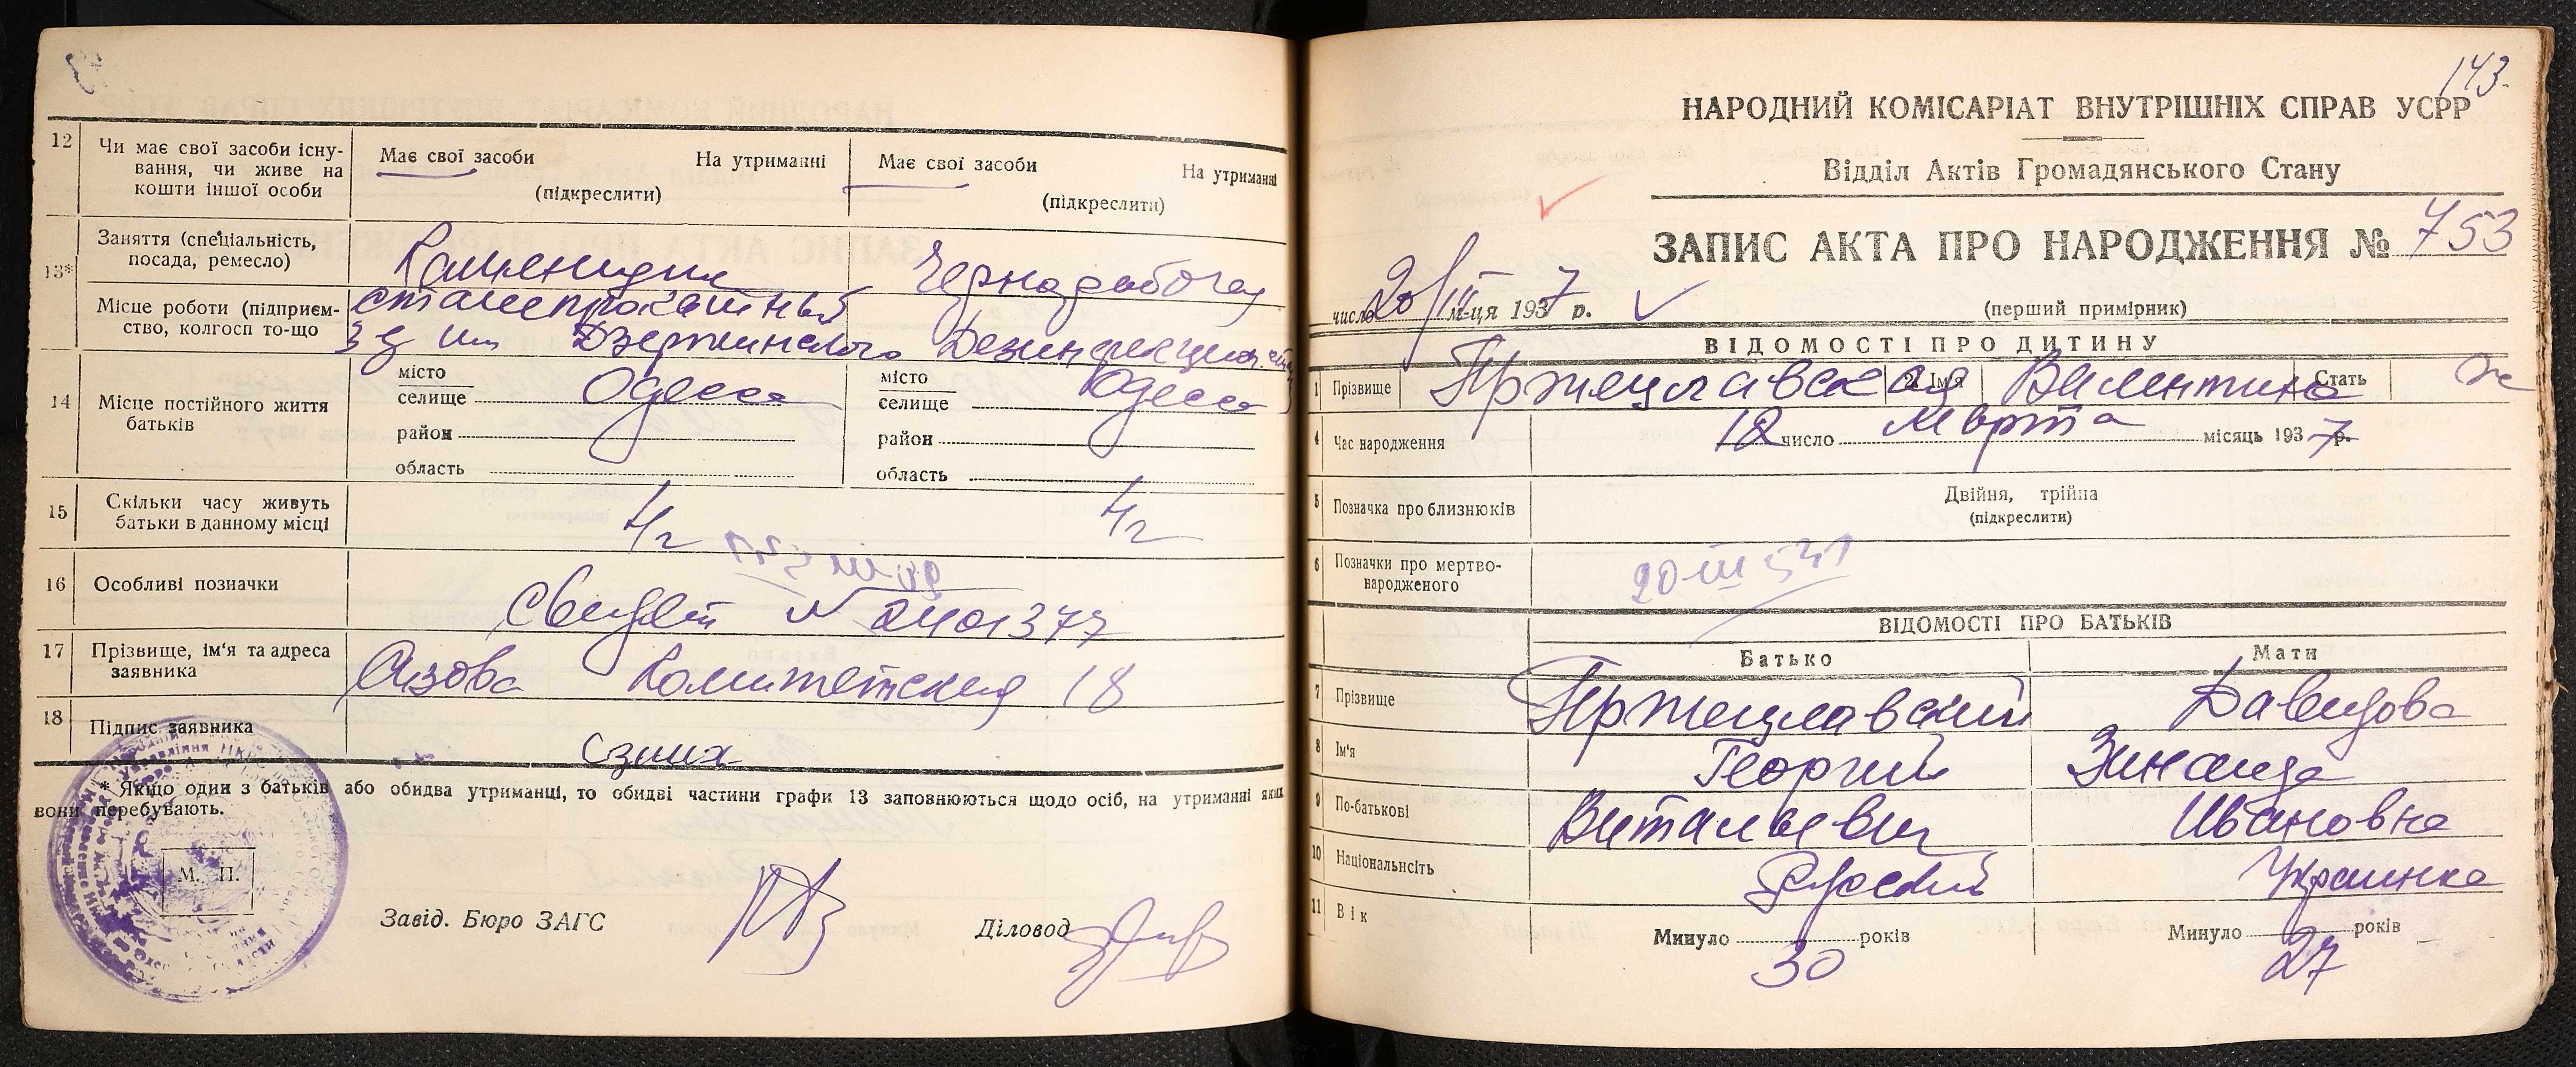 12 Чи має свої засоби існу-
вання, чи живе на
кошти іншої особи
Має свої засоби На утриманні
(підкреслити)
Має свої засоби На утриманні
(підкреслити)
13* Заняття (спеціальність,
посада, ремесло)
Каменщик Чернорабочая
Місце роботи (підприєм-
ство, колгосп то-що
сталепрокатный
з-д им Дзержинского Дезинфекцион.
14 Місце постійного життя
батьків
місто
селище Одесса
район
область
місто
селище Одесса
район
область
15 Скільки часу живуть
батьки в данному місці
4 г 4 г
16 Особливі позначки
Свидет № 2401377
17 Прізвище, ім'я та адреса
заявника
Азова Комитетская 18
18 Підпис заявника
* Якщо один з батьків або обидва утриманці, то обидві частини графи 13 заповнюються щодо осіб, на утриманні яких
вони перебувають.
М. П.
Завід. Бюро ЗАГС Діловод
143.
НАРОДНИЙ КОМІСАРІАТ ВНУТРІШНІХ СПРАВ УСРР
Відділ Актів Громадянського Стану
ЗАПИС АКТА ПРО НАРОДЖЕННЯ № 753
число 20/III м-ця 1937 р.
(перший примірник)
ВІДОМОСТІ ПРО ДИТИНУ
1 Прізвище Пржецлавская 2 Ім'я Валентина Стать ж
4 Час народження 12 число марта місяць 1937 р.
5 Позначка про близнюків
Двійня, трійна
(підкреслити)
6 Позначки про мертво-
народженого
20 III 541
ВІДОМОСТІ ПРО БАТЬКІВ
Батько Мати
7 Прізвище Пржецлавский Давидова
8 Ім'я Георгий Зинаида
9 По-батькові Витальевич Ивановна
10 Національнсіть Русский Украинка
11 Вік
Минуло 30 років
Минуло 27 років